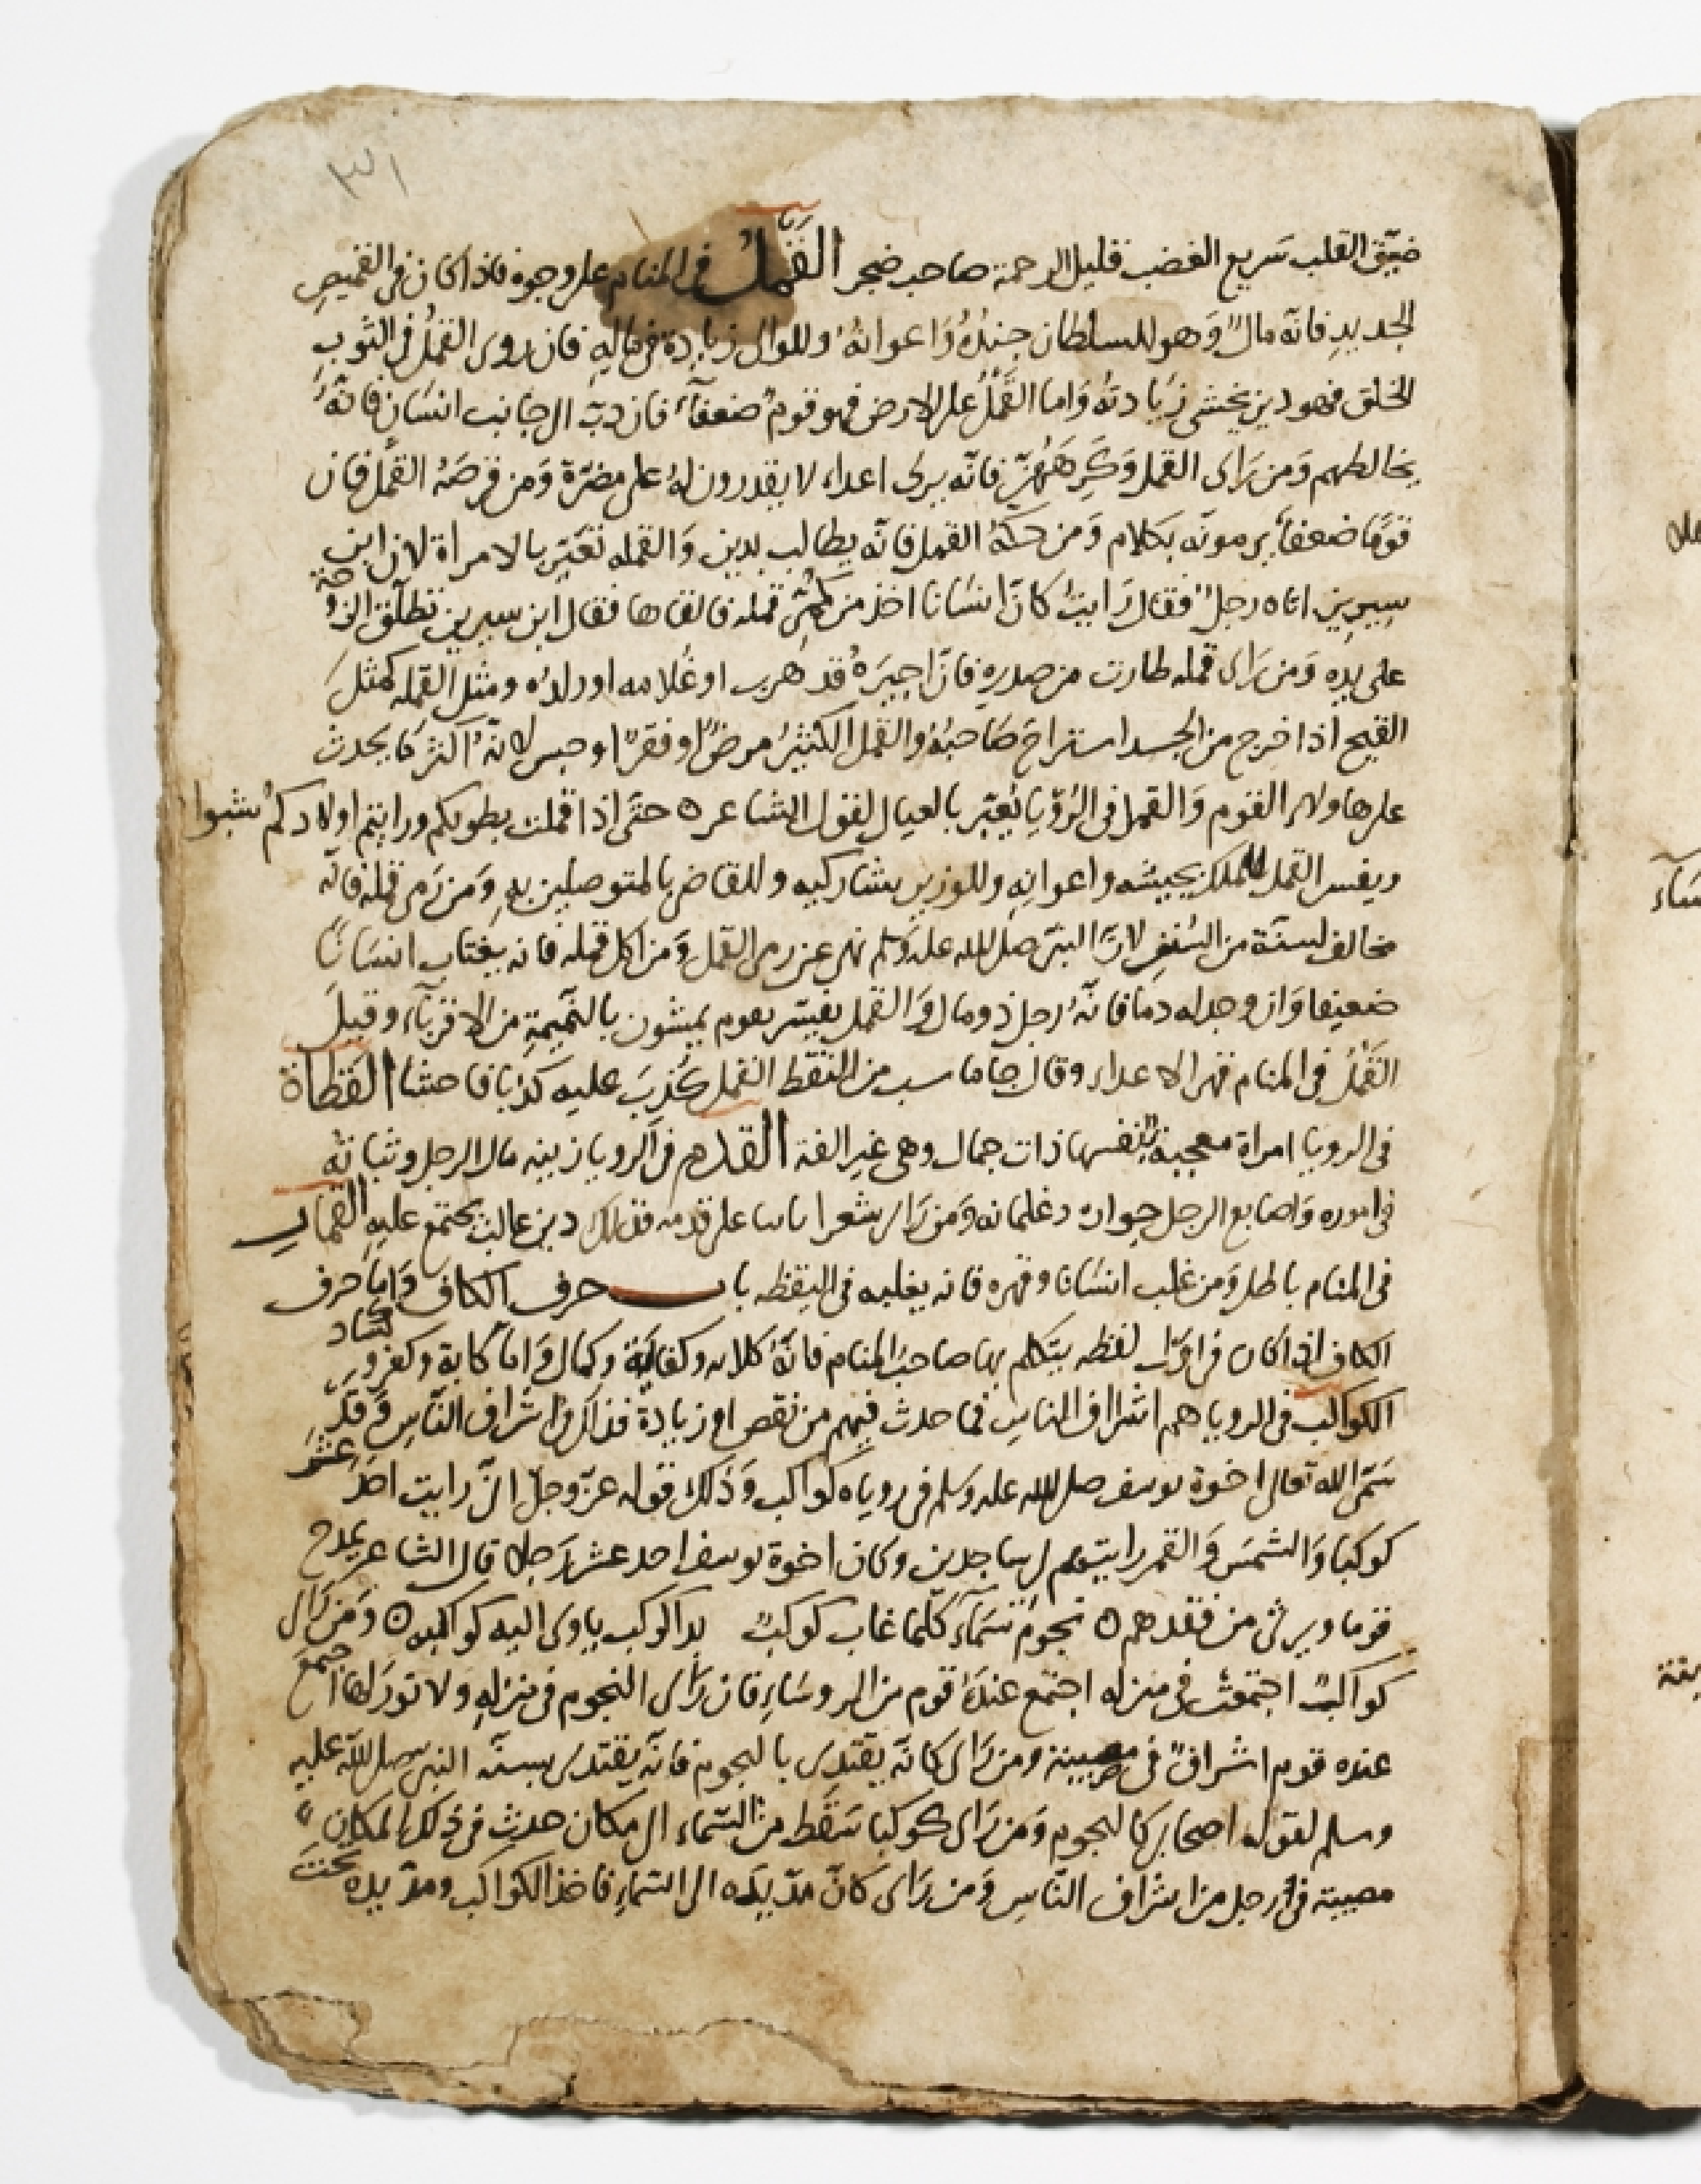 ٣١
ضيّق القلب سَريع الغضب قليل الرحمة صاحب ضجر القَمْل في المنام على وجوه فاذا كان في القميصِ
الجديدِ فانّه مالٌ وَهو للسلطان جندُهُ وَاعوانهُ وللوالى زيادة فى مالهِ فان روى القملُ فى الثوبِ
الخلق فهو دين يخشى زيَادتهُ وَاما القَمْلُ على الارض فهو قومٌ ضعفآءُ فان دبّ الى جانب انسَان فانّهُ
يخالطهم وَمن رَاى القمل وَكَرِهَهُنّ فانّه يرى اعداء لا يقدرون لهُ على مضرّة وَمن قرصَهُ القمْل فان
قومًا ضعفاء يرمونه بكلام وَمن حكهُ القمل فانّه يطالب بدين وَالقمله تعبّر بالامراة لان ابن
سيرين اتاه رجلٌ فقال رَايتُ كانّ انسَانا اخذ من كمّى قمله فالقاها فقال ابن سيرين تطلّق الزوجة
على يدهِ وَمن رَاى قمله طارت من صدرهِ فانّ اجيرَهُ قد هرب او غُلامه او ولدُه ومثل القمله كمثلَ
القيح اذا خرج من الجسد استراح صَاحبُهُ والقمل الكثيرُ مرضٌ او فقرٌ او حبس لانّهُ اكثر مَا يحدث
على هاولاى القوم وَالقمل فى الرؤيا يُعبّر بالعيال لقول الشاعر ه حتّى اذا قملت بطونكم ورايتم اولادكمُ شبوا
ويفسر القمل للملك بجيشه واعوانِهِ وللوزير بشاركيه وللقاضى بالمتوصلين بهِ وَمن رَمى قمله فانّه
مخالف لسنّة من السُننِ لانّ النبىّ صلى الله عليه وَسلم نهى عن رمى القملِ وَمن اكل قمله فانه يغتاب انسَانًا
ضعيفا وَان وجد له دمَا فانّهُ رجل ذو مال وَالقمل يفسّر بقوم يمشون بالنَّميمةِ من الاقربآء وقيلَ
القَمْلُ فى المنام قهر الاعداء وقال جاماسب من التقط القمل كُذِبَ عليه كذبًا فاحشا القَطاة
فى الرويا امراة معجبة بنفسها ذات جمال وهى غير الفة القدم فى الرويا زينه مال الرجل وثباتُه
فى اموره وَاصابع الرجل جوارٌ وغلمانه وَمن رَاى شعرا نابتا على قدمه فذلك دين غالبٌ يجتمع عليهِ القمار
فى المنام باطل وَمن غلب انسَانا وقهره فانه يغلبه فى اليقظه باب حرف الكاف وَاما حرف
الكاف اذا كان فى اوّل لفظه يتكلم بها صاحبُ المنام فانّهُ كلام وكفاية وكمال وَاما كابة وكفر وكسَاد
الكواكب فى الرويا هم اشراف الناس فما حدث فيهم من نقص او زيادة فذلك فى اشراف النَّاس وَقدْ
سَمّى الله تعالى اخوة يوسف صلى الله عليه وسلم فى روياه كواكب وَذلك قوله عزّ وجلّ انّى رايت احدَ عشَرَ
كوكبًا وَالشمسَ وَالقمر رايتهم لى ساجدين وكان اخوة يوسف احد عشر رَجلا قال الشاعر يمدح
قوما ويرثى من فقدهم ه نجومُ سَمآءٍ كلّما غاب كوكبٌ بدا كوكب ياوى اليه كواكبه ه وَمن رَاى
كواكبٌ اجتمعتْ فى منزله اجتمع عندَهُ قوم من الروسَاءِ فان رَاى النجوم فى منزلِهِ ولا نورَ لها اجتمعَ
عنده قوم اشرافٌ فى مصيبة ومن رَاى كانّه يقتدى بالنجوم فانّه يقتدى بسنّه النبى صلى اللّه عليه
وسلم لقوله اصحابى كالنجوم وَمن رَاى كوكبا سَقَط من السّماء الى مكان حدث فى ذلك المكانِ
مصيبة فى رجل من اشراف النّاس وَمن رَاى كانّ مدّ يدَه الى السّماءِ فاخذ الكواكب ومدّ يده تحت